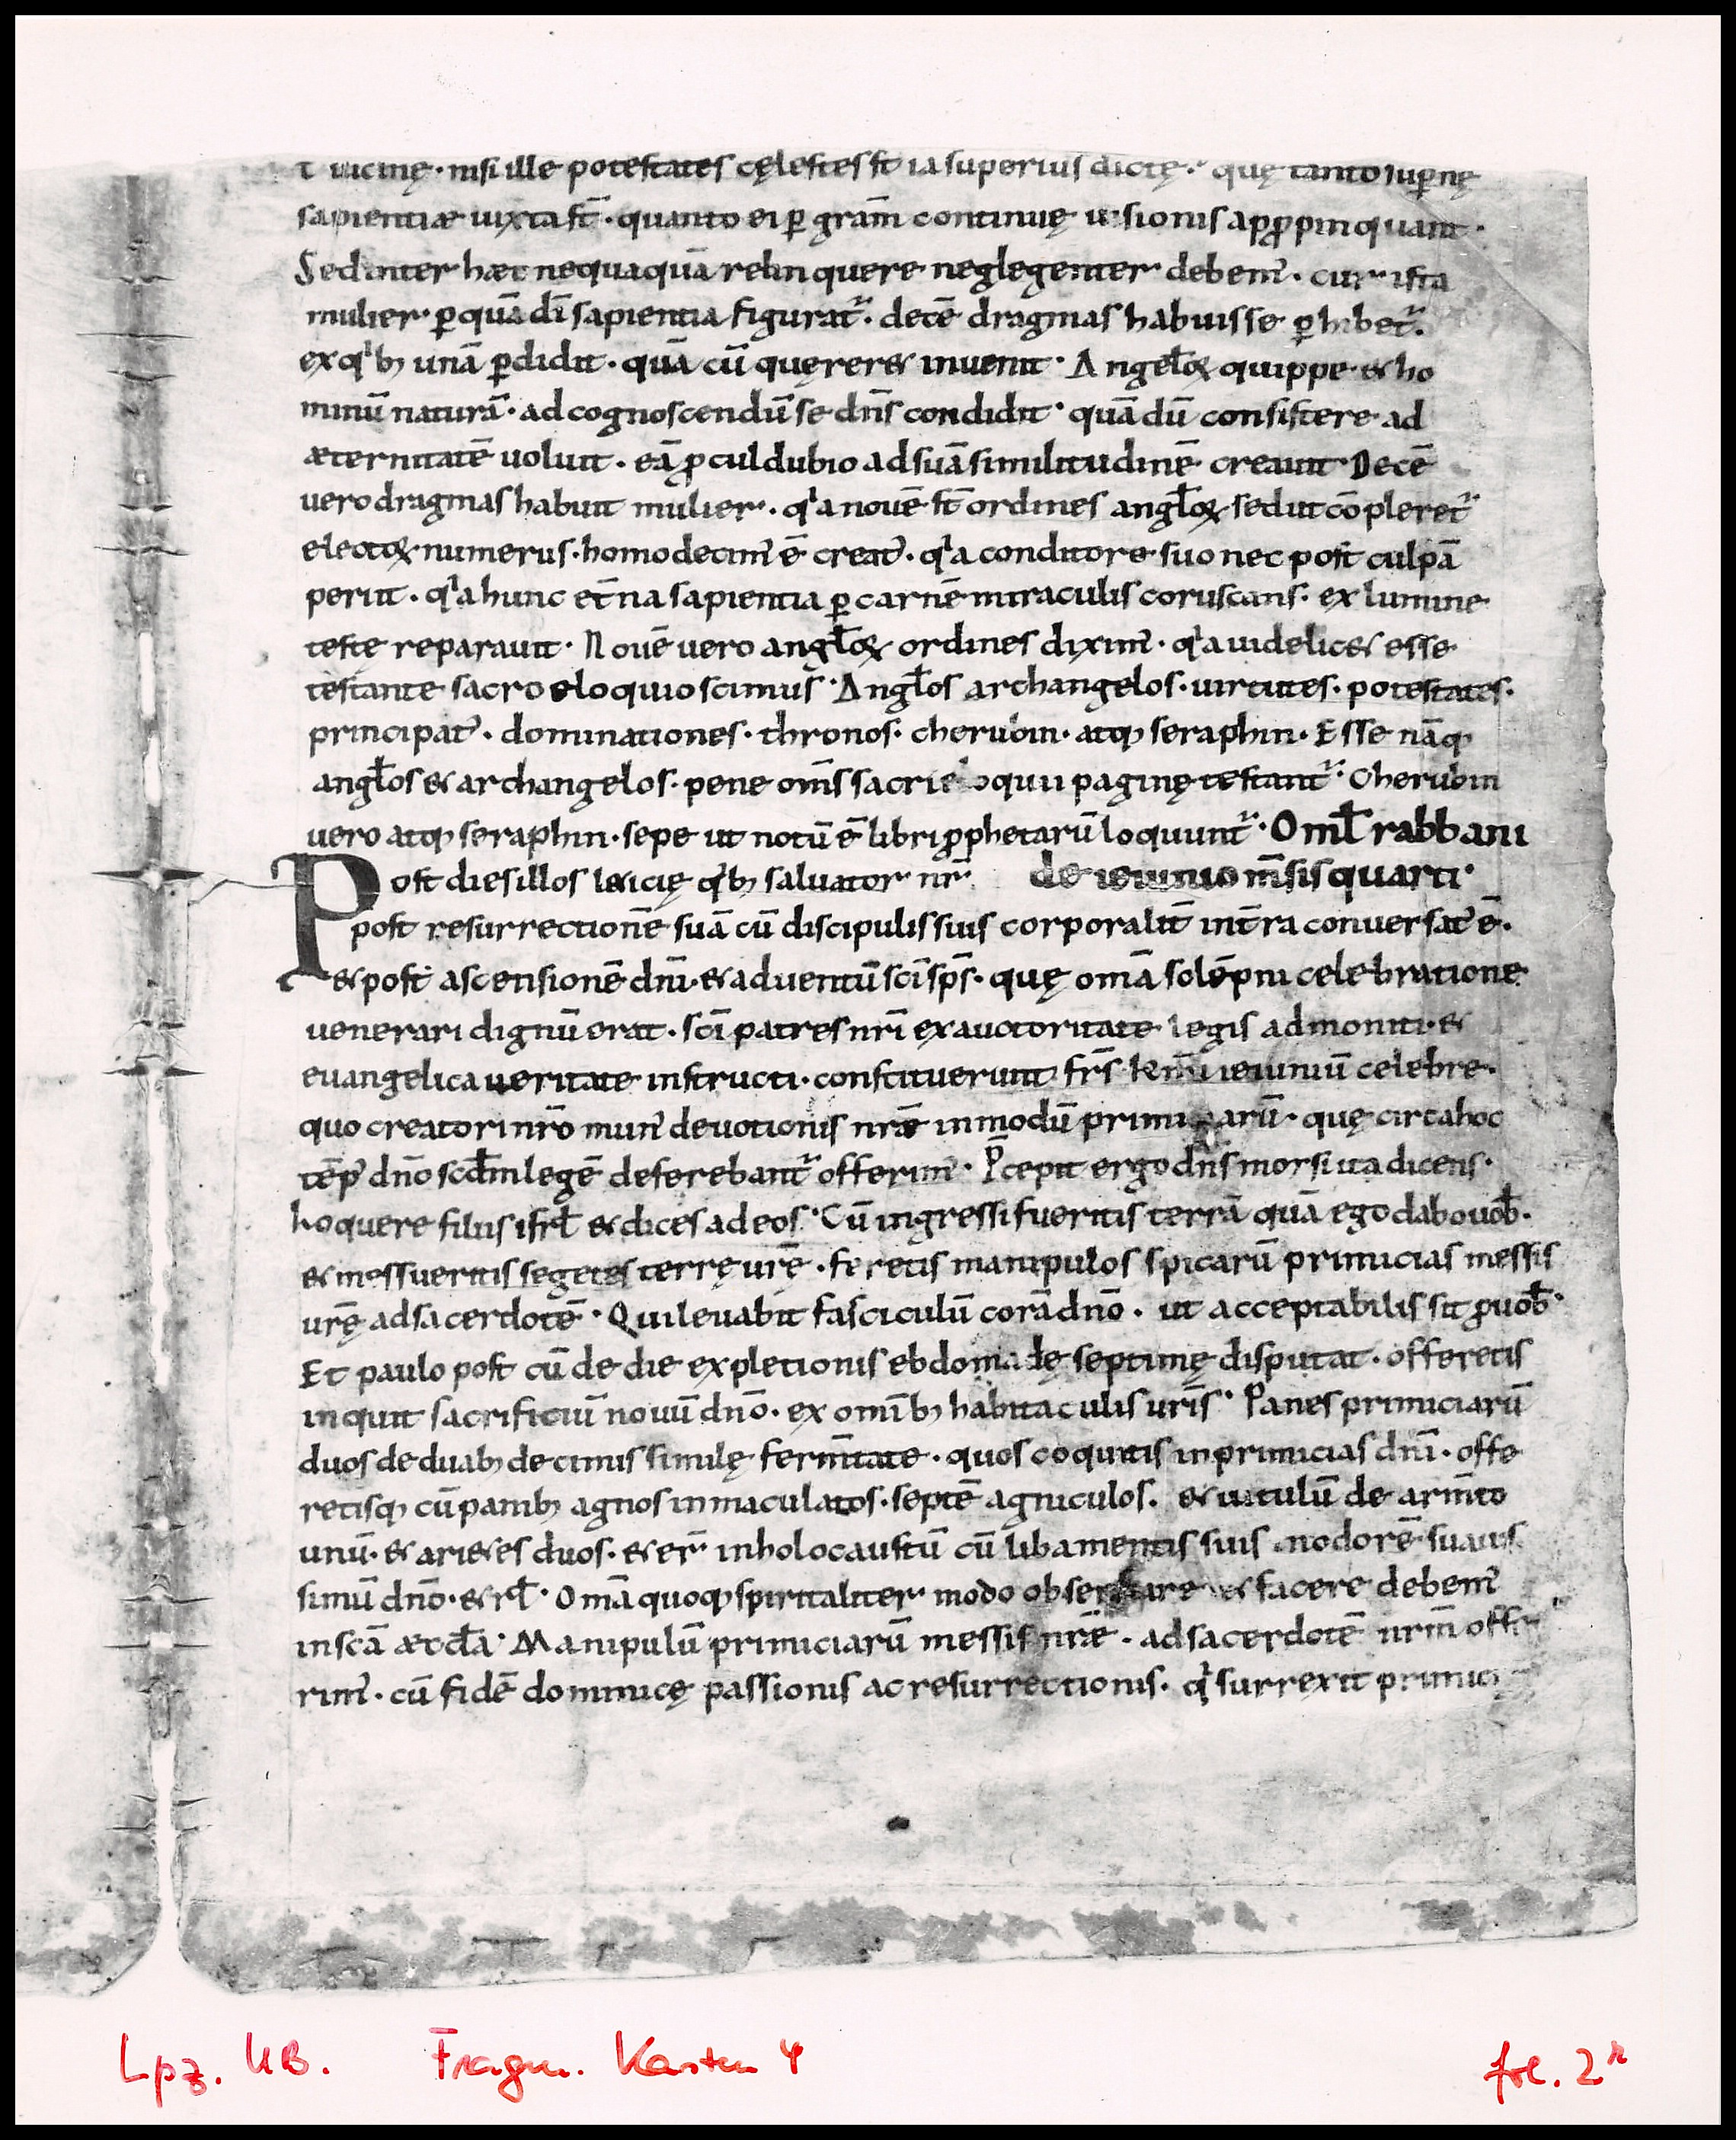 uicinę · nisi ille potestates cęlestes st̄ iā superius dictę · quę tanto sup̲nę
sapientiæ iuxta st̄ · quanto ei p̲ grām continuę uisionis apꝓpinquant ·
Sed inter hæc nequaquā relinquere neglegenter debem᾿ · cur ista
mulier · p̲ quā dī sapientia figurat᷑ · decē dragmas habuisse p̲hibet᷑ ·
ex qⁱbꝫ unā p̲didit · quā cū quęreret inuenit · Angeloꝝ quippe · & ho
minū naturā · ad cognoscendū se dn̄s condidit · quā dū consistere ad
æternitatē uoluit · eā ꝓculdubio ad suā similitudinē creauit · Decē
uero dragmas habuit mulier · qⁱa nouē st̄ ordines angl̄oꝝ sed ut cōpleret᷑
electoꝝ numerus · homo decim᾿ ē creat᾿ · qⁱ a conditore suo nec post culpā
periit · qⁱa hunc et̄na sapientia p̲ carnē miraculis coruscans · ex lumine
testę reparauit · Nouē uero angl̄oꝝ ordines dixim᾿ · qⁱa uidelic& esse
testante sacro eloquio scimus · Angl̄os archangelos · uirtutes · potestates ·
principat᾿ · dominationes · thronos · cherubin · atqꝫ seraphin · Esse nāqꝫ
angl̄os & archangelos · pene om̄s sacri eloquii paginę testant᷑ · Cherubin
uero atqꝫ seraphin · sepe ut notū ē libri ꝓphetarū loquunt᷑ · Omł rabbani
Post dies illos l&icię qⁱbꝫ saluator nr̄ de ieiunio m̄sis quarti ·
post resurrectionē suā cū discipulis suis corporalit̄ int̄ra conuersat᾿ ē ·
& post ascensionē dn̄i · & aduentū sc̄i sp̄s · quę om̄a solēpni celebratione
uenerari dignū erat · sc̄i patres nr̄i ex auctoritate legis admoniti · &
euangelica ueritate instructi · constituerunt fr̄s km̄i ieiuniū celebre ·
quo creatori nr̄o mun᾿ deuotionis nr̄æ in modū primi arū · quę circa hoc
tēp᾿ dn̄o scđm legē deferebant᷑ offerim᾿ · P̄cepit ergo dn̄s morsi ita dicens ·
Loquere filiis isrł & dices ad eos · Cū ingressi fueritis terrā quā ego dabo uob̄ ·
& messueritis segetes terrę ur̄e · feretis manipulos spicarū primicias messis
ur̄ę ad sacerdotē · Qui leuabit fasciculū corā dn̄o · ut acceptabilis sit ꝓ uob̄ ·
Et paulo post cū de die expletionis ebdomadę septimę disputat · offeretis
inquit sacrificiū nouū dn̄o · ex om̄ibꝫ habitaculis ur̄is · Panes primiciarū
duos de duabꝫ decimis similę ferm̄tate · quos coquitis in primicias dn̄i · offe
retisqꝫ cū panibꝫ agnos inmaculatos · septē agniculos · & uitulū de arm̄to
unū · & ari&es duos · & er᷑ in holocaustū cū libamentis suis in odorē suauis
simū dn̄o · & rł · Om̄a quoqꝫ spiritaliter modo obseruare & facere debem᾿
in sc̄a æccl̄a · Manipulū primiciarū messis nr̄æ · ad sacerdotē nr̄m offe
rim᾿ · cū fidē dominicę passionis ac resurrectionis · qⁱ surrexit primici
Lpz. UB. Fragm. Kasten 4 fol. 2r